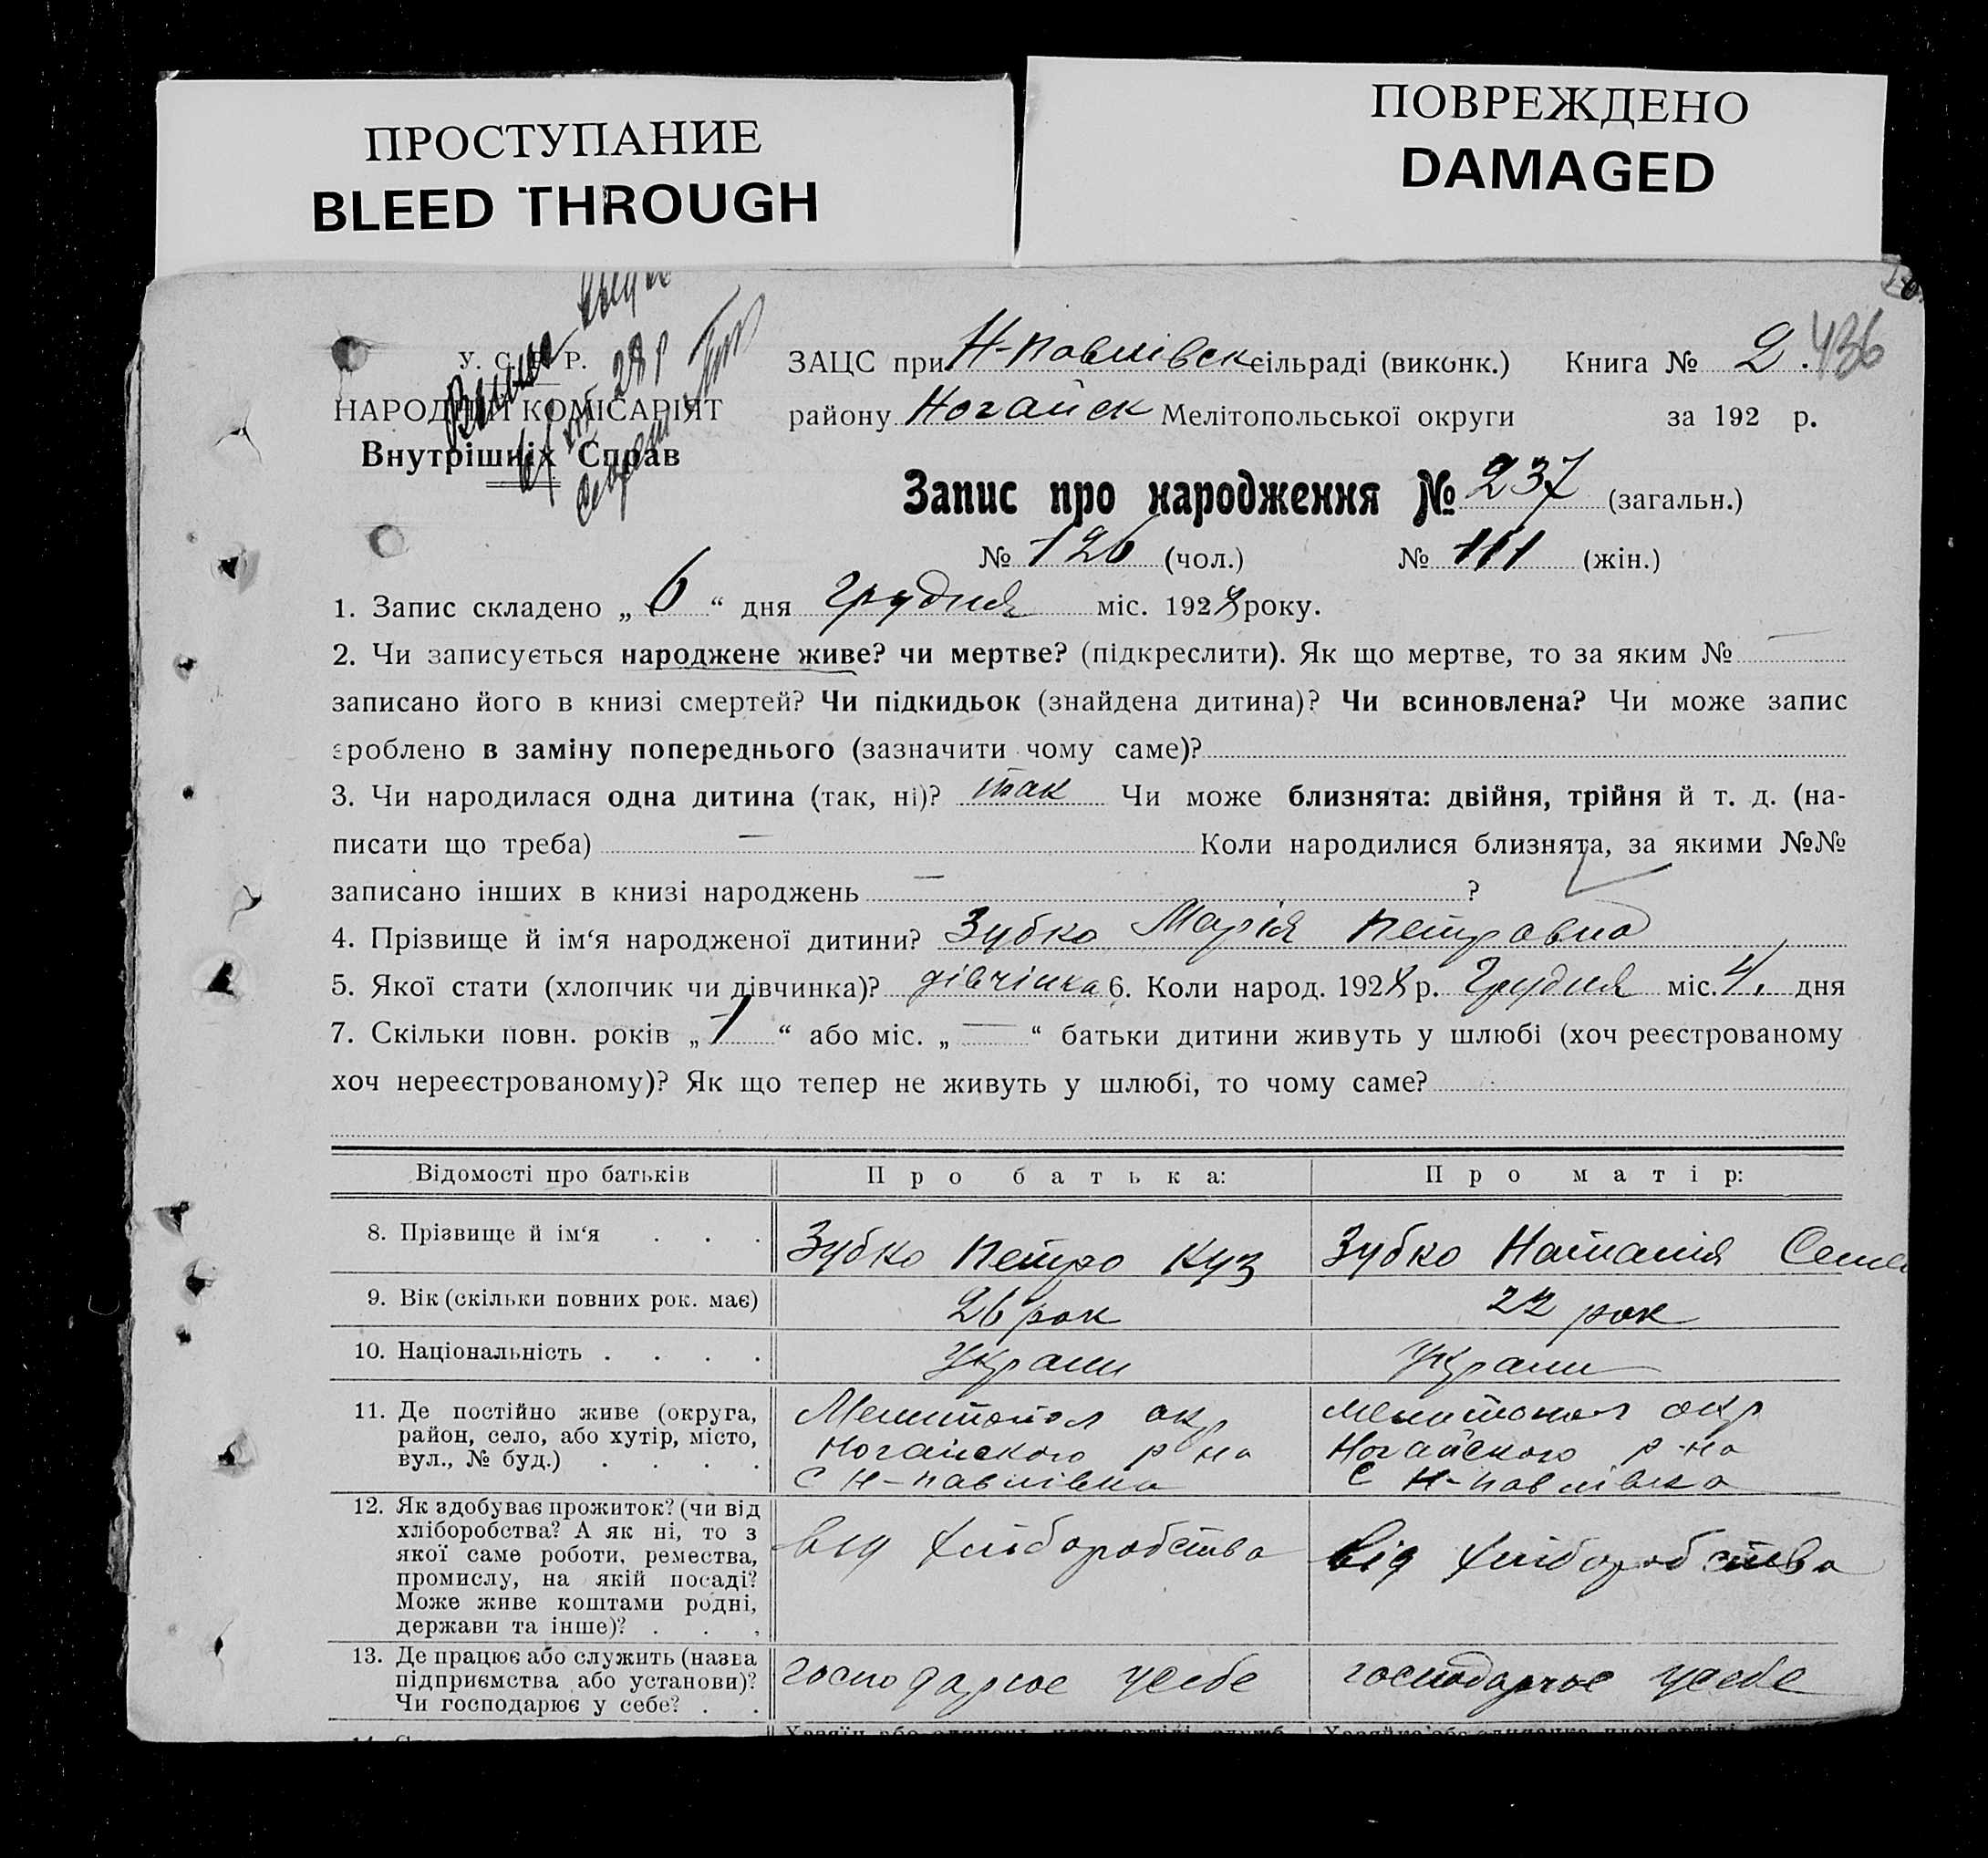 ПРОСТУПАНИЕ
BLEED THROUGH
ПОВРЕЖДЕНО
DAMAGED
У. С. Р. Р.
НАРОДНІЙ КОМІСАРІЯТ
Внутрішніх Справ
28 р
ЗАЦС при Н-Павлівск сільраді (виконк.) Книга № 2. 436
району Ногайск Мелітопольської округи за 192 р.
Запис про народження № 237 (загальн.)
№ 126 (чол.) № 111 (жін.)
1. Запис складено „ 6 “ дня Грудня міс. 1928 року.
2. Чи записується народжене живе? чи мертве? (підкреслити). Як що мертве, то за яким № —
записано його в книзі смертей? Чи підкидьок (знайдена дитина)? Чи всиновлена? Чи може запис
зроблено в заміну попереднього (зазначити чому саме)?
3. Чи народилася одна дитина (так, ні)? так Чи може близнята: двійня, трійня й т. д. (на-
писати що треба) — Коли народилися близнята, за якими №№
записано інших в книзі народжень — ?
4. Прізвище й ім‘я народженої дитини? Зубко Марія Петровна
5. Якої стати (хлопчик чи дівчинка)? дівчінка 6. Коли народ. 1928 р. Грудня міс. 4. дня
7. Скільки повн. років „ 1 “ або міс. „ — “ батьки дитини живуть у шлюбі (хоч реєстрованому
хоч нереєстрованому)? Як що тепер не живуть у шлюбі, то чому саме?
Відомості про батьків Про батька: Про матір:
8. Прізвище й ім‘я . . . Зубко Петро Куз Зубко Наталія Семе
9. Вік (скільки повних рок. має) 26 рок 22 рок
10. Національність . . . . Украин Украин
11. Де постійно живе (округа, Мелитопол окр Мелитопол окр
район, село, або хутір, місто, Ногайского р на Ногайского р-на
вул., № буд.) . . . . С Н-павлівка С Н-павлівка
12. Як здобуває прожиток? (чи від
хліборобства? А як ні, то з від хліборобства від хліборобства
якої саме роботи, ремества,
промислу, на якій посаді?
Може живе коштами родні,
держави та інше)? . . .
13. Де працює або служить (назва
підприємства або установи)? господарює усебе господарює усебе
Чи господарює у себе? . .